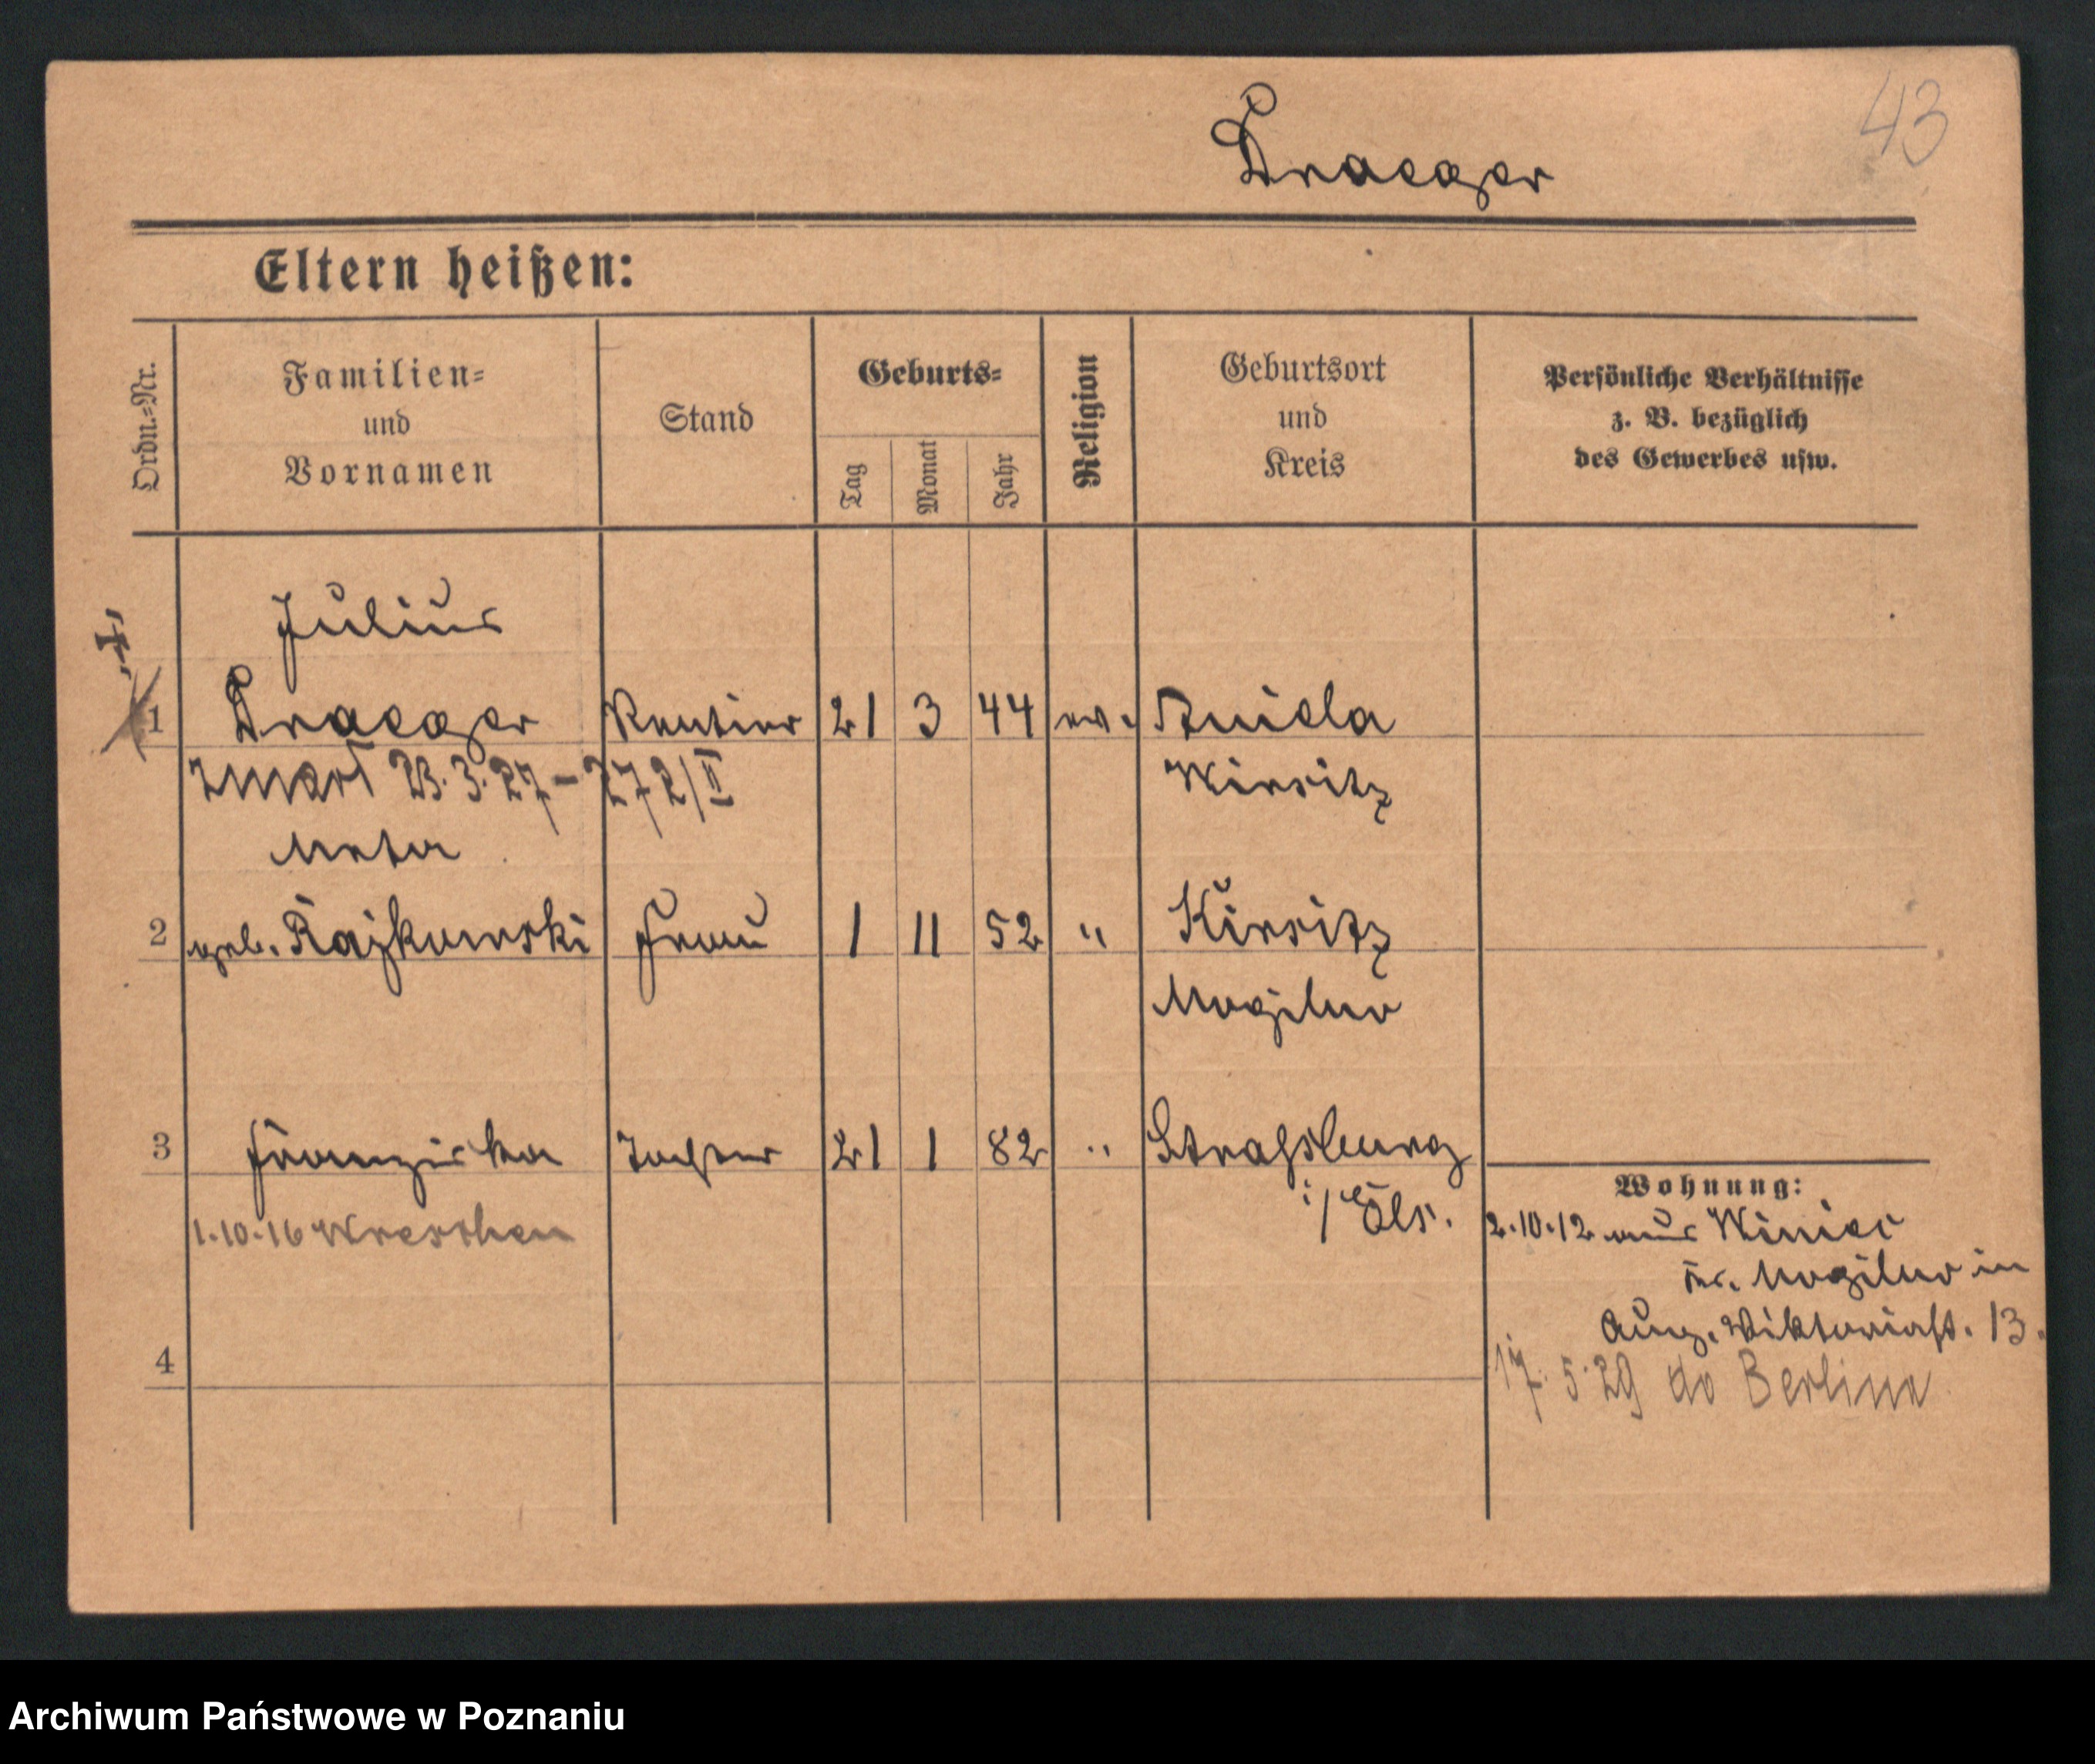 43
Draeger
Eltern heißen:
Ordn.=Nr.
Familien=
und
Vornamen
Stand
Geburts=
Tag
Monat
Jahr
Religion
Geburtsort
und
Kreis
Persönliche Verhältnisse
z. B. bezüglich
des Gewerbes usw.
Julius
1 Draeger Rentier 21 3 44 ev.
Wirsitz
zmarł 23.3.27 - 272/II
Meta
2 geb. Rajkowski Frau 1 11 52 "
Mogilno
3 Franziska Tochter 21 1 82 " Straßburg
i/Els.
1.10.16 Wreschen
Wohnung:
2.10.12 aus Winiec
Kr. Mogilno in
Aug. Viktoriast. 13.
4
17.5.29 do Berlina
Archiwum Państwowe w Poznaniu